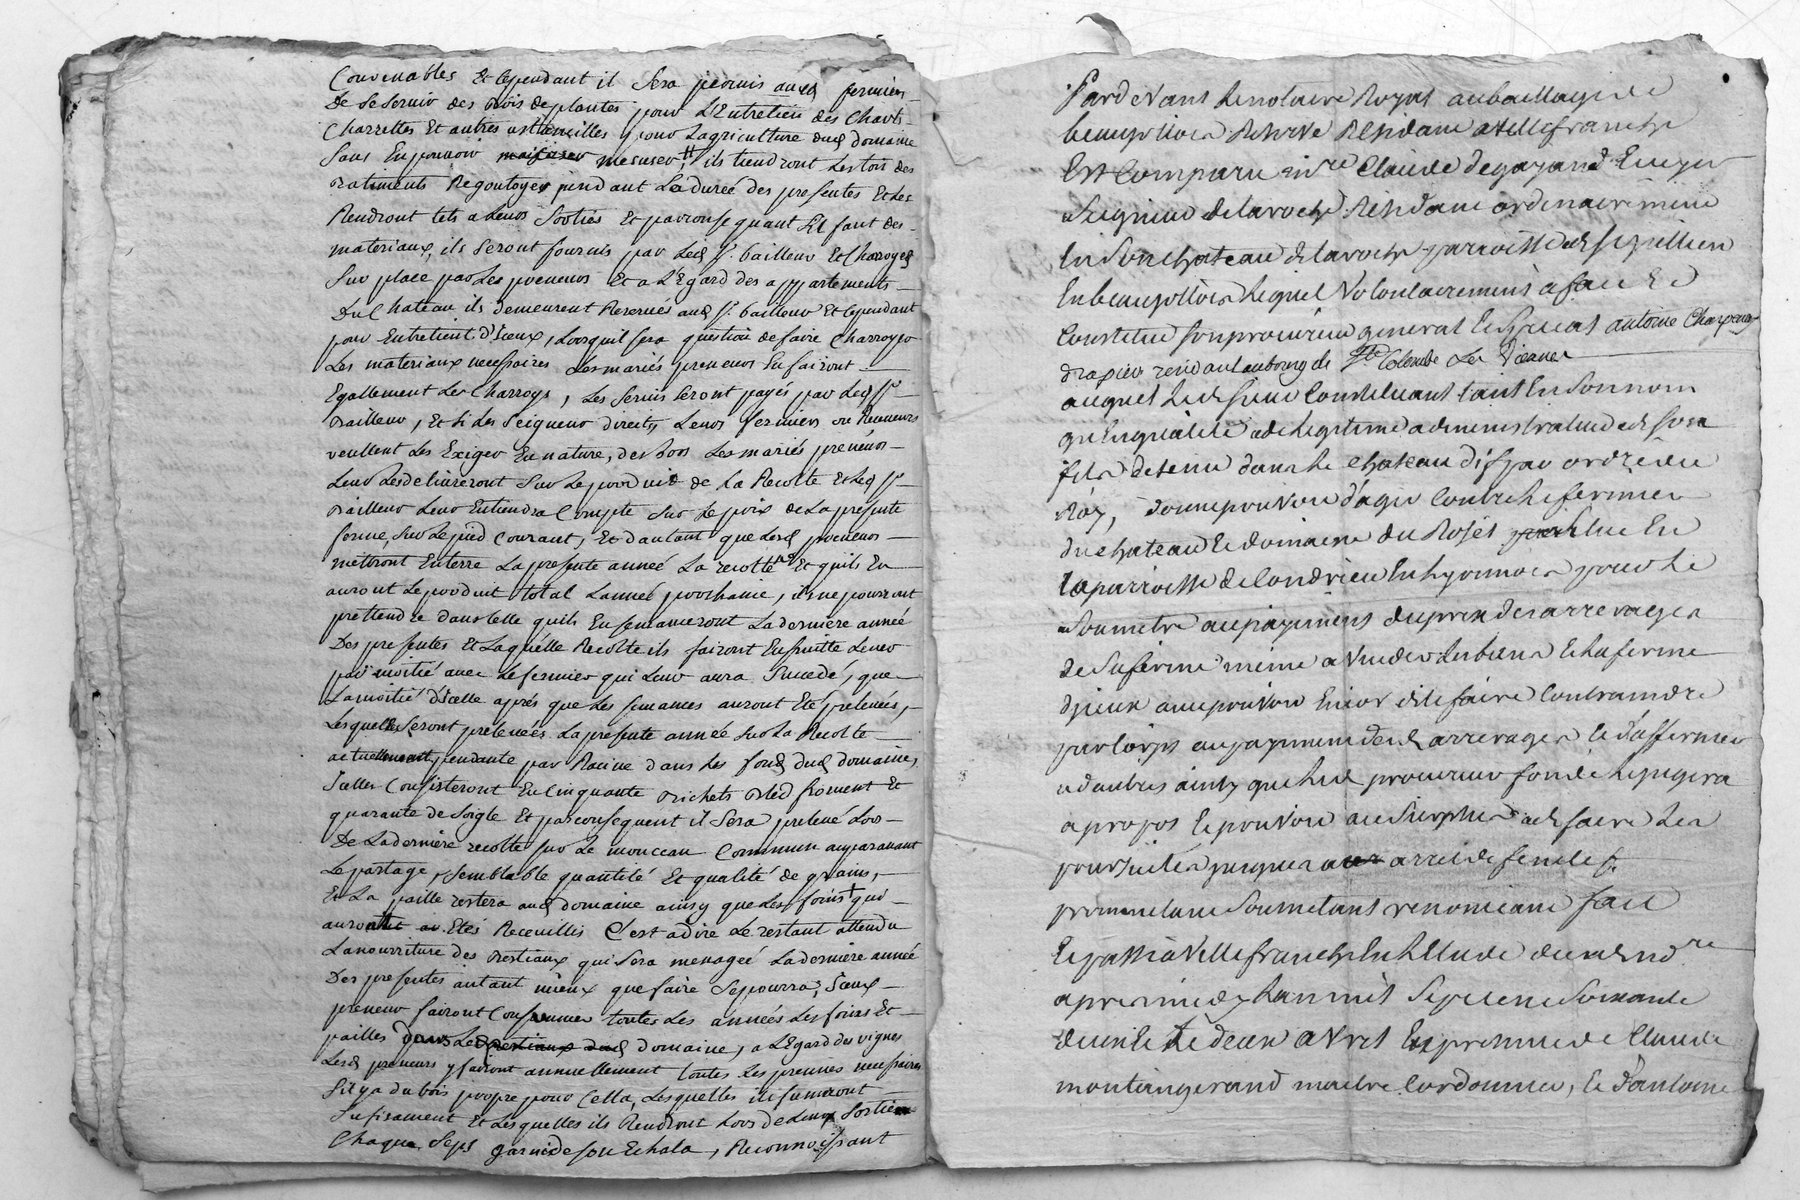 Convenables Et Cependant il Sera permis auxd fermiers
De Se Servir des bois de plantes pour L'Entretien des Chars
Charrettes Et autres usttencilles pour Lagriculture dud domaine
Sans En pouvoir mesuser, ils tiendront Les toits des
Batiments Regoutoyés pendant La durée des presentes Et Les
Rendront tels a Leurs Sorties Et par consequant S'il faut des
materiaux, ils Seront fournis par Led Sr. bailleur Et Charroyés
Sur place par Les preneurs Et a L'Egard des appartements
Du Chateau ils demeurent Reservés aud Sr. bailleur Et Cependant
pour Entretient d'Iceux, Lorsquil sera question de faire Charroyer
Les materiaux necessaires Les mariés preneurs En fairont
Egallement Les Charroys, Les Servis Seront payés par Led Sr
Bailleur, Et Si Les Seigneurs directs, Leurs fermiers ou Receveurs
veullent Les Exiger En nature, des Lors Les mariés preneurs
Leur Les delivreront Sur Le produit de La Recolte Et Led Sr
Bailleur Leur En tiendra Compte Sur Le prix de La presente
ferme, Sur Le pied Courant, Et dautant que Lesd preneurs
mettront En terre La presente année La recolte Et quils En
auront Le produit total Lannée prochaine, ils ne pourront
prettendre dans Celle quils Ensemanceront La derniere année
Des presentes Et Laquelle Recolte ils fairont Ensuitte Lever
par moitié avec Le fermier qui Leur aura Succedé, que
La moitié d'Icelle après que Les Semances auront Eté prelevées,
Lesquelles Seront prelevées La presente année Sur La Recolte
actuellement pendante par Racine dans Les fonds dud domaine,
Icelles Consisteront En Cinquante Bichets Bled froment Et
quarante de Soigle Et par consequent il Sera prelevé Lors
De La derniere recolte Sur Le monceau Commun auparavant
Le partage, Semblable quantité Et qualité de grains,
Et La paille restera aud domaine ainsy que Les foins qui
auront Etés Receuillis C'est a dire Le restant attendu
La nourriture des Bestiaux qui Sera menagée La derniere année
Des presentes autant mieux que faire Se pourra, Iceux
preneurs fairont Consumer toutes Les années Les foins Et
pailles dans Led domaine, a L'Egard des vignes
Lesd preneurs y fairont annuellement toutes Les preuves necessaires
S'il y a du bois propre pour Cella, Lesquelles ils fumeront
Sufisament Et Lesquelles ils Rendront Lors de Leur Sortie
Chaque Seps garnis de Son Echala, Reconnoissant
Pardevant Le notaire Royal au bailliage de
beaujollois Reservé Residant a Villefranche
Est Comparu mre Claude degayand Ecuyer
Seigneur de laroche Residant ordinairement
En Son Chateau de laroche parroisse de
En beaujollois Lequel Volontairement a fait Et
Constitué Son procureur general Et Special antoine
drapier residant au bourg de Ste Colombe Les Vienne
auquel Led Sieur Constituant tant En Son nom
qu'En qualité de Legitime administrateur de Son
fils detenu dans Le Chateau d'if par ordre du
Roy, donne pouvoir d'agir Contre Le fermier
du Chateau Et domaine du Rosés Situé En
La parroisse de Condrieu En Lyonnois pour Le
Soumetre au payement du prix des arrerages
de Sa ferme même a Vuider Les biens de La ferme
d'yceux avec pouvoir Encor de Le faire Contraindre
par Corps au payement desd arrerages Et d'affermer
a dautres ainsy que Led procureur fondé Le jugera
a propos Et pouvoir au Surplus de faire Les
poursuites jusques a arret definitif
promettant Soumetant renonceant fait
Et passé a Villefranche En L'Etude dud nore
apres midy L'an mil Sept cent Soixante
deux Et Le deux avril En presence de Claude
montangerand maitre Cordonnier, Et d'antoine